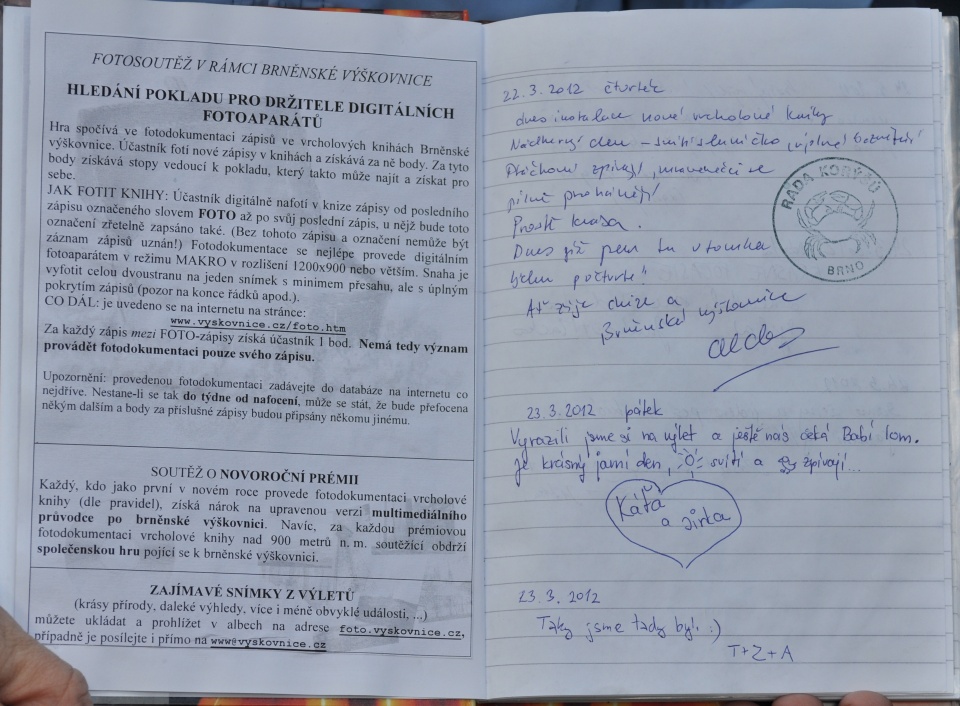 FOTOSOUTĚŽ V RÁMCI BRNĚNSKÉ VÝŠKOVNICE
HLEDÁNÍ POKLADU PRO DRŽITELE DIGITÁLNÍCH
FOTOAPARÁTŮ
Hra spočívá ve fotodokumentaci zápisů ve vrcholových knihách Brněnské
výškovnice. Účastník fotí nové zápisy v knihách a získává za ně body. Za tyto
body získává stopy vedoucí k pokladu, který takto může najít a získat pro
sebe.
JAK FOTIT KNIHU: Účastník digitálně nafotí v knize zápisy od posledního
zápisu označeného slovem FOTO až po svůj poslední zápis, u nějž bude toto
označení zřetelně zapsáno také. (Bez tohoto zápisu a označení nemůže být
záznam zápisů uznán!) Fotodokumentace se nejlépe provede digitálním
fotoaparátem v režimu MAKRO v rozlišení 1200x900 nebo větším. Snaha je
vyfotit celou dvoustranu na jeden snímek s minimem přesahu, ale s úplným
pokrytím zápisů (pozor na konce řádků apod.).
CO DÁL: je uvedeno se na internetu na stránce:
www.vyskovnice.cz/foto.htm
Za každý zápis mezi FOTO-zápisy získá účastník 1 bod. Nemá tedy význam
provádět fotodokumentaci pouze svého zápisu.
Upozornění: provedenou fotodokumentaci zadávejte do databáze na internetu co
nejdříve. Nestane-li se tak do týdne od nafocení, může se stát, že bude přefocena
někým dalším a body za příslušné zápisy budou připsány někomu jinému.
SOUTĚŽ O NOVOROČNÍ PRÉMII
Každý, kdo jako první v novém roce provede fotodokumentaci vrcholové
knihy (dle pravidel), získá nárok na upravenou verzi multimediálního
průvodce po brněnské výškovnici. Navíc, za každou prémiovou
fotodokumentaci vrcholové knihy nad 900 metrů n. m. soutěžící obdrží
společenskou hru pojící se k brněnské výškovnici.
ZAJÍMAVÉ SNÍMKY Z VÝLETŮ
(krásy přírody, daleké výhledy, více i méně obvyklé události, ...)
můžete ukládat a prohlížet v albech na adrese foto.vyskovnice.cz,
případně je posílejte i přímo na www@vyskovnice.cz
22.3.2012 čtvrtek
dnes instalace nové vrcholové knihy
Nádherný den - svítí sluníčko, úplné
Ptáčkové zpívají, mravenečci se
pilně prohánějí
Prostě krása.
Dnes již jsem tu v tomhle
týdnu počtvrté!
Ať žije chůze a
Brněnská výškovnice
RADA KORÝŠŮ
BRNO
23.3.2012 pátek
Vyrazili jsme si na výlet a ještě nás čeká Babí lom.
Je krásný jarní den, svítí a zpívají...
Káťa
a Jirka
23.3.2012
Taky jsme tady byli :)
T+Z+A